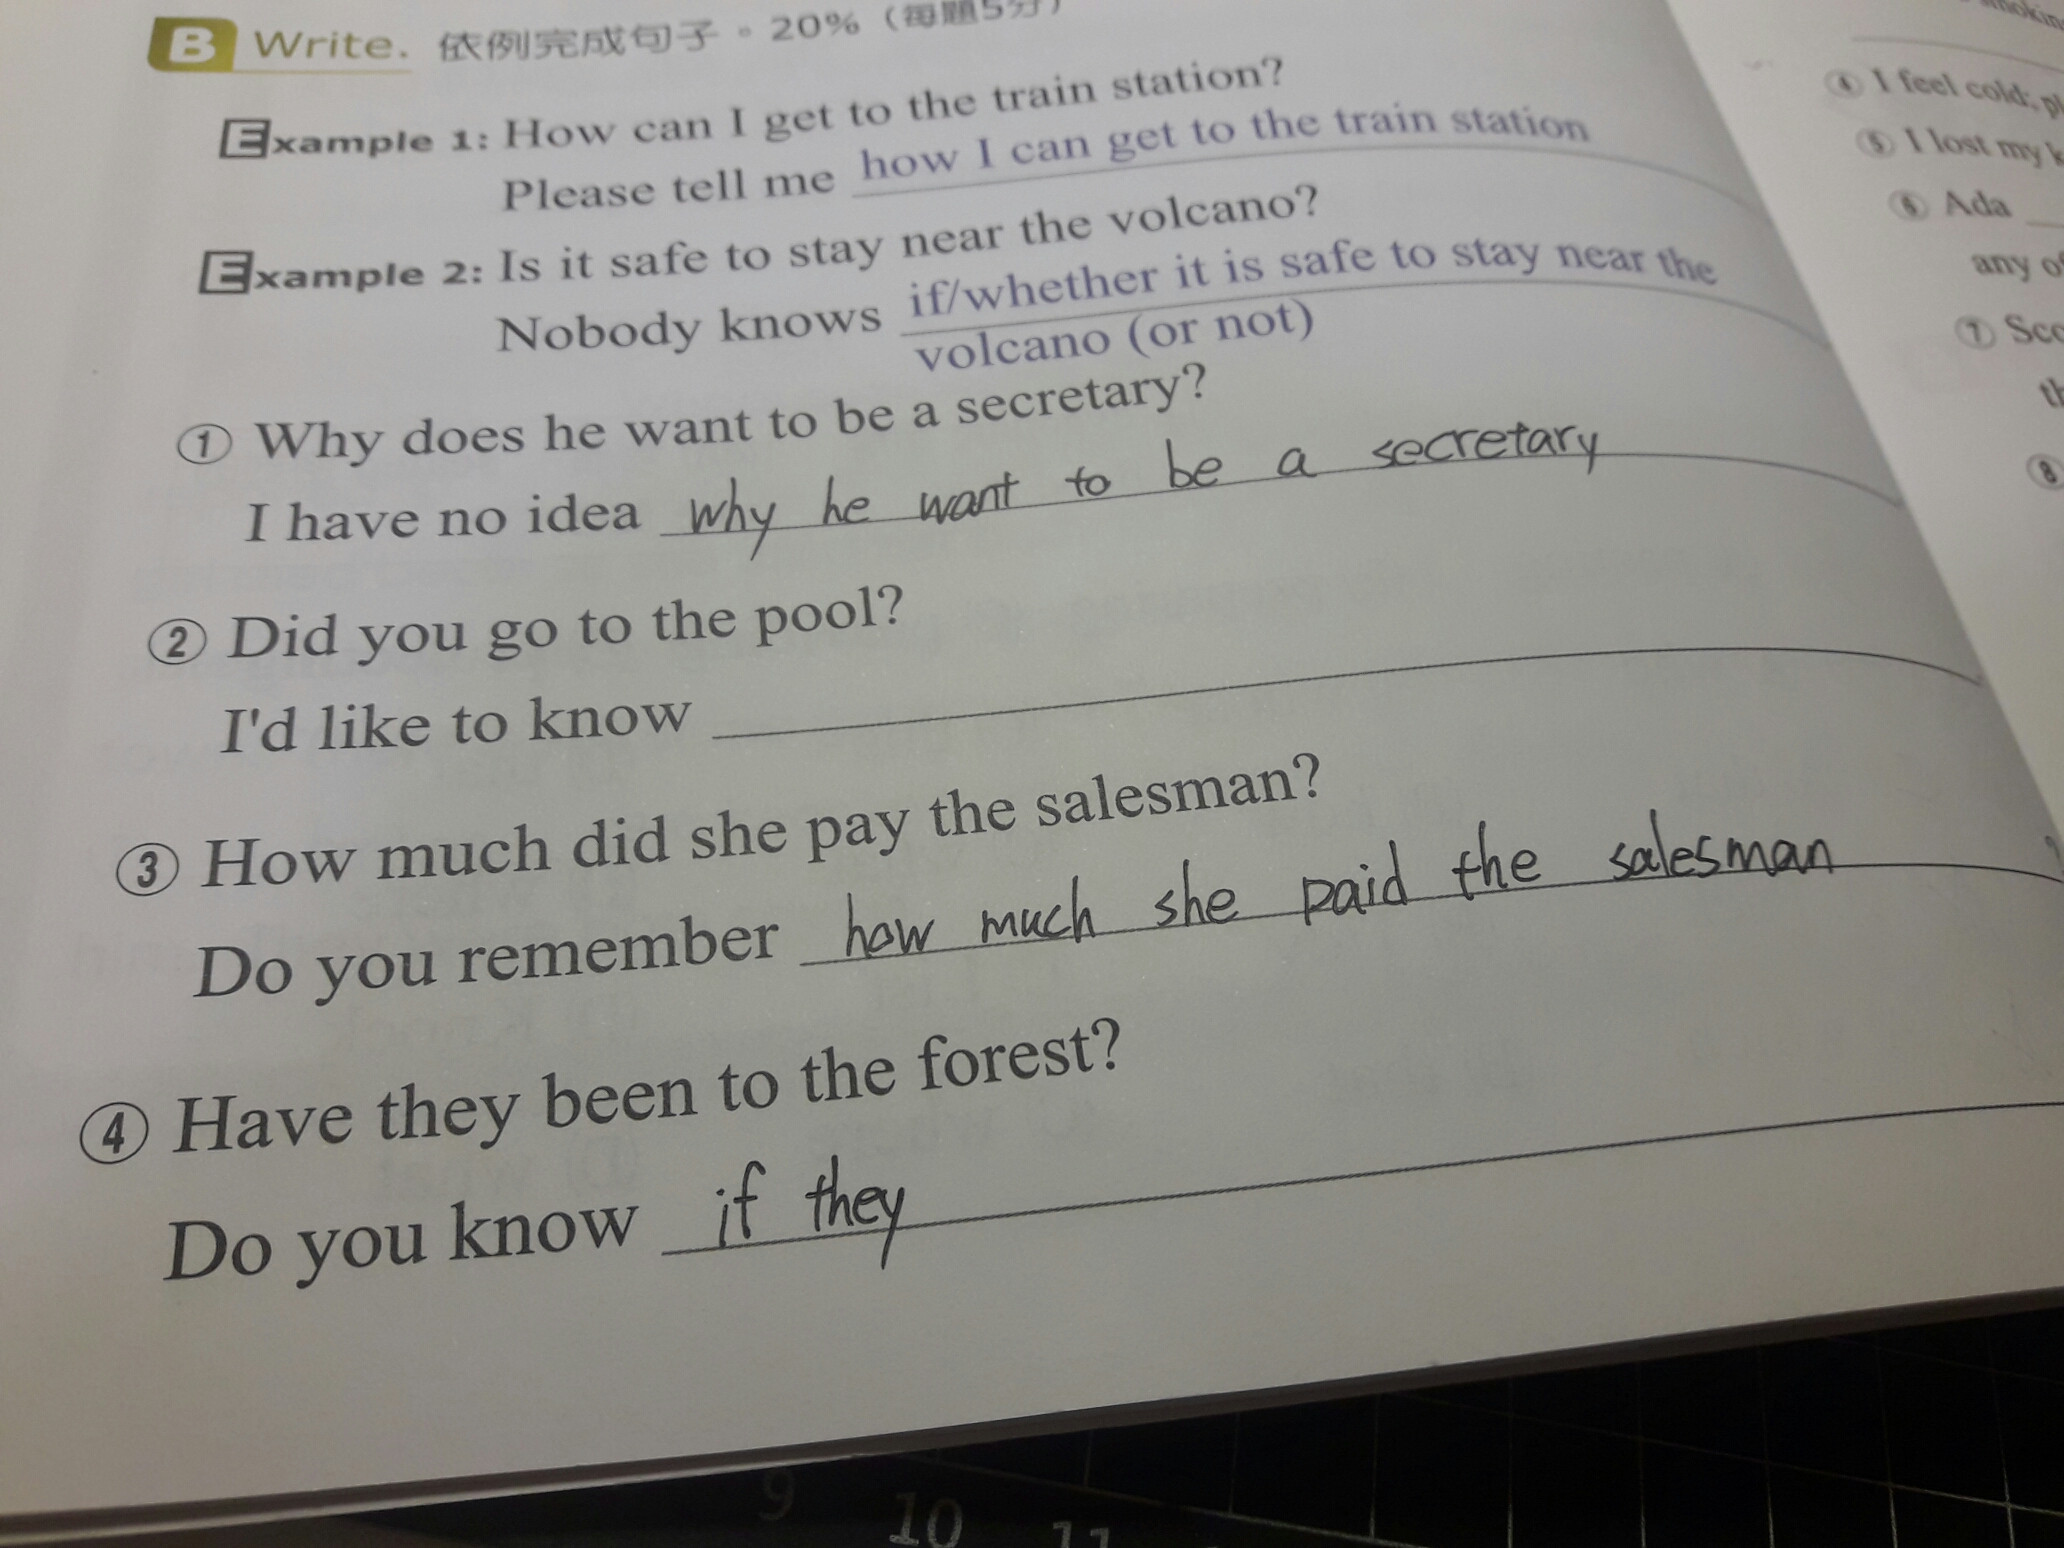 B Write. 依例完成句子。20%（每題5分）
Example 1: How can I get to the train station?
Please tell me how I can get to the train station
Example 2: Is it safe to stay near the volcano?
Nobody knows if/whether it is safe to stay near the
volcano (or not)
① Why does he want to be a secretary?
I have no idea why he want to be a secretary
② Did you go to the pool?
I'd like to know
③ How much did she pay the salesman?
Do you remember how much she paid the salesman
④ Have they been to the forest?
Do you know if they
④ I feel cold;
⑤ I lost my
⑥ Ada
any
⑦
⑧
9 10 11